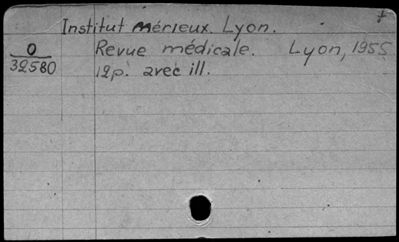 Institut Mérieux. Lyon.
O Revue médicale. Lyon, 1955
32580 12p. avec ill.